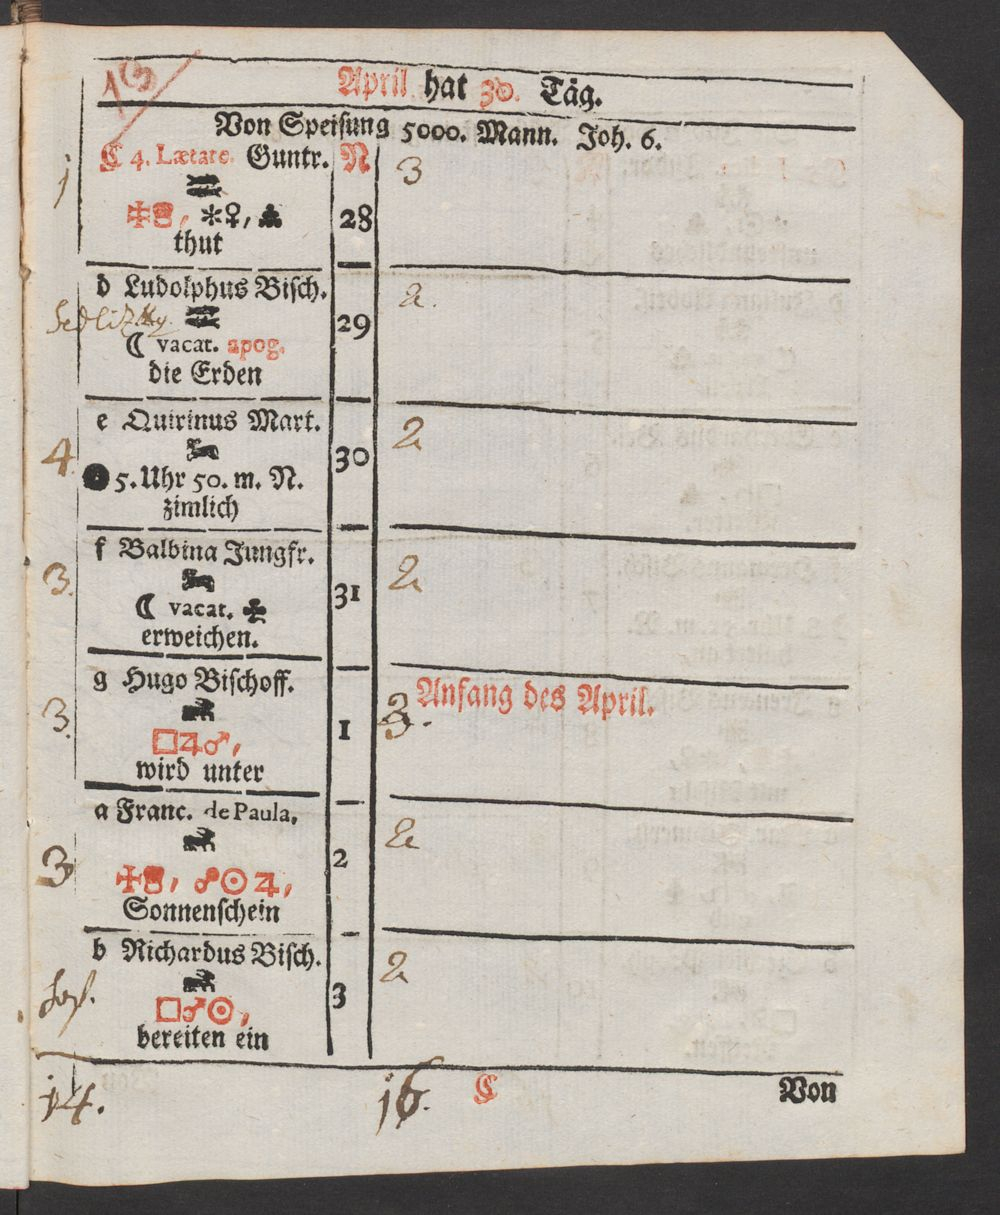 April hat 30. Täg.
Von Speisung 5000. Mann. Joh. 6.
C 4. Lætare. Guntr. N 3
j
28
thut
d Ludolphus Bisch. 2.
Sedlitzky. 29
☾ vacat. apog.
die Erden
e Quirinus Mart. 2
4. 30
● 5. Uhr 50. m. N.
zimlich
f Balbina Jungfr. 2
3. 31
☾ vacat. ✠
erweichen.
g Hugo Bischoff. Anfang des April.
3. 1 3.
□♃♂,
wird unter
a Franc. de Paula, 2
3 2
☍☉♃,
Sonnenschein
b Richardus Bisch. 2
3
□♂☉,
bereiten ein
14. 16. C Von